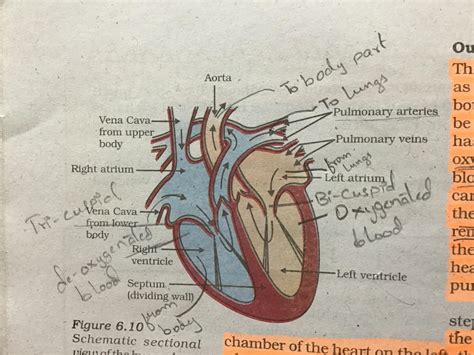 Aorta
To body part
To lungs
Vena Cava
from upper
body
Pulmonary arteries
Pulmonary veins
from
lungs
Right atrium
Left atrium
Tri-cuspid
Bi-cuspid
Oxygenated
blood
Vena Cava
from lower
body
de-oxygenated
blood
from
body
Right
ventricle
Left ventricle
Septum
(dividing wall)
Figure 6.10
Schematic sectional
chamber of the heart on the left, th
Ou
Th
as
bo
be
ha
ox
blo
car
the
ren
the
hea
pu
step
the